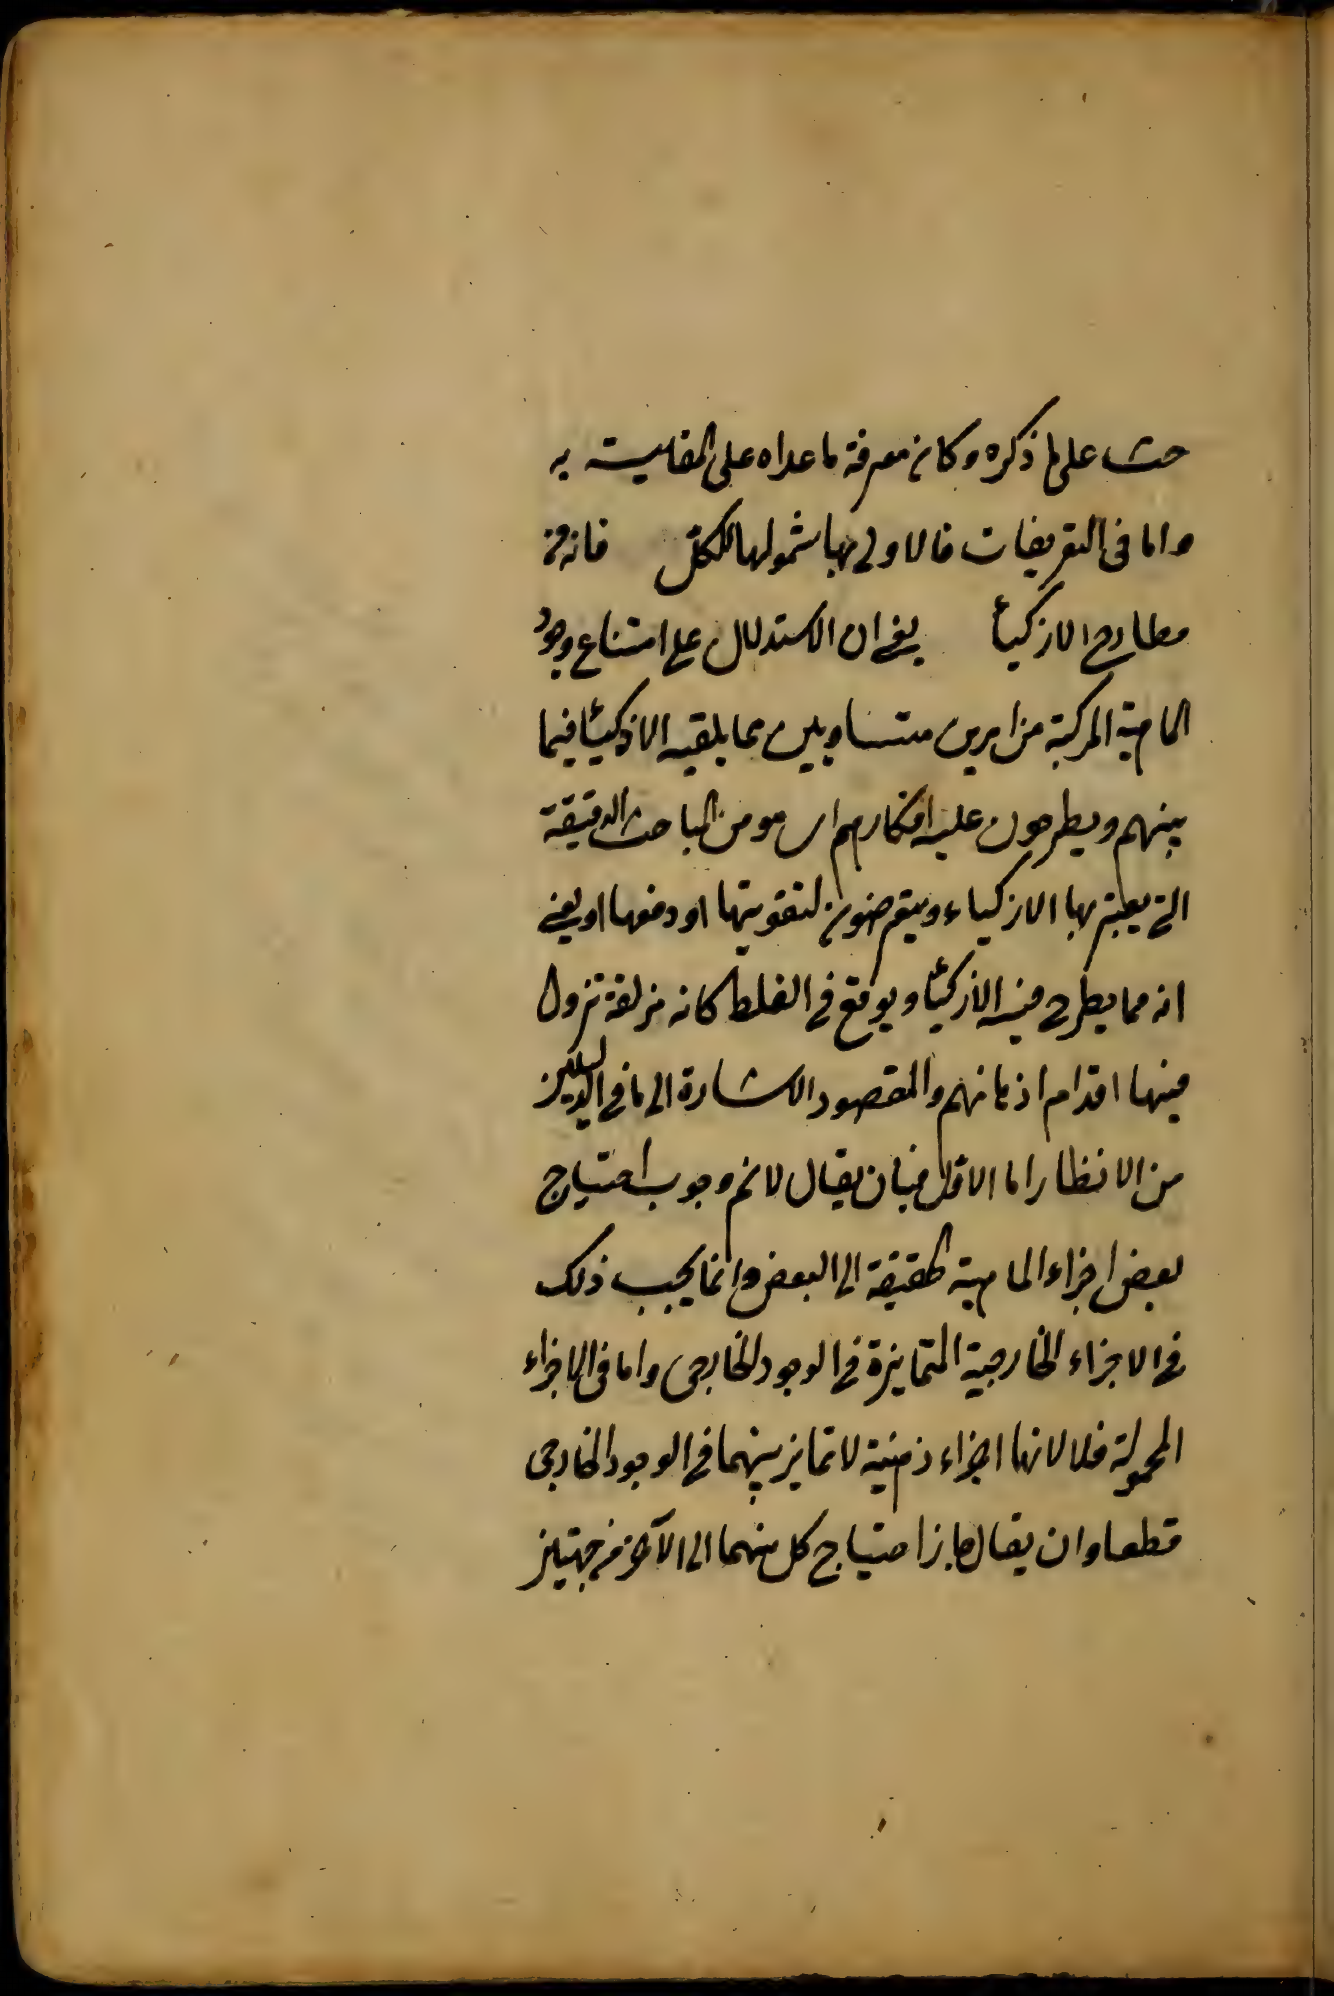 حث على ما ذكره وكان معرفة ما عداه على المقايسة به
واما فى التعريفات فالاولى بها شمولها للكل فانه من
مطارح الاذكيأ يعنى ان الاستدلال على امتناع وجود
الماهية المركبة من امرين متساويين مما يلقيه الاذكيأ فيما
بينهم ويطرحون عليه افكارهم اى هو من المباحث الدقيقة
التى يعتبر بها الاذكياء ويتعرضون لتقويتها او دفعها او يعنى
انه مما يطرح فيه الاذكيأ ويوقع فى الغلط كانه مزلقة تزول
فيها اقدام اذهانهم والمقصود الاشارة الى ما فى الدليلين
من الانظار اما الاول فبان يقال لانم وجوب احتياج
بعض اجزاء الماهية الحقيقة الى البعض وانما يجب ذلك
فى الاجزاء الخارجية المتمايزة فى الوجود الخارجى واما فى الاجزاء
المحمولة فلا لانها اجزاء ذهنية لا تمايز بينهما فى الوجود الخارجى
قطعا وان يقال جاز احتياج كل منهما الى الآخر من جهتين